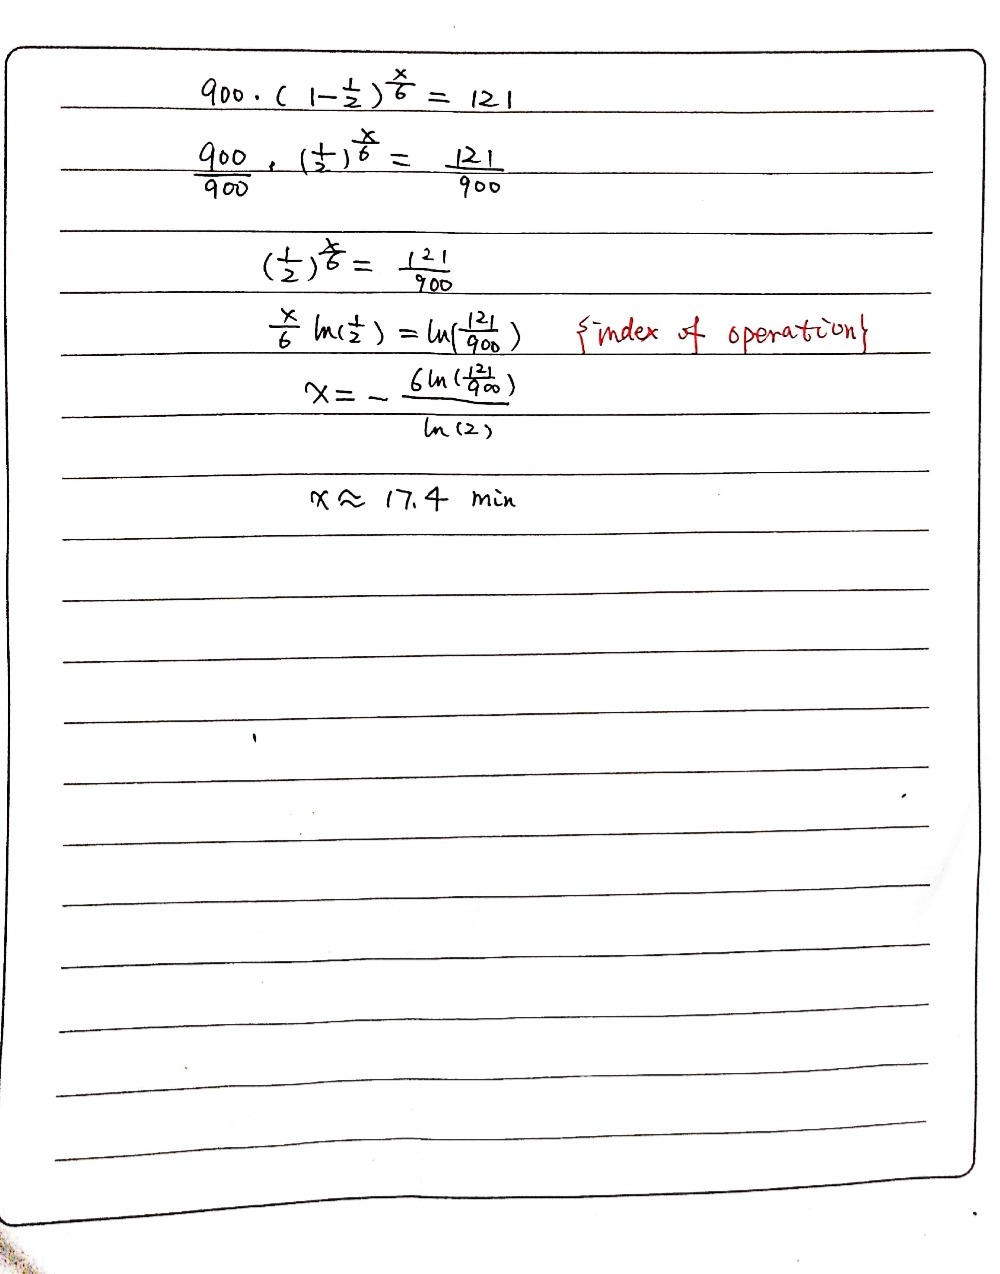 900 · ( 1 - 1/2 )^(x/6) = 121
900/900 · (1/2)^(x/6) = 121/900
(1/2)^(x/6) = 121/900
x/6 ln(1/2) = ln(121/900) {index of operation}
x = - 6ln(121/900) / ln(2)
x ≈ 17.4 min